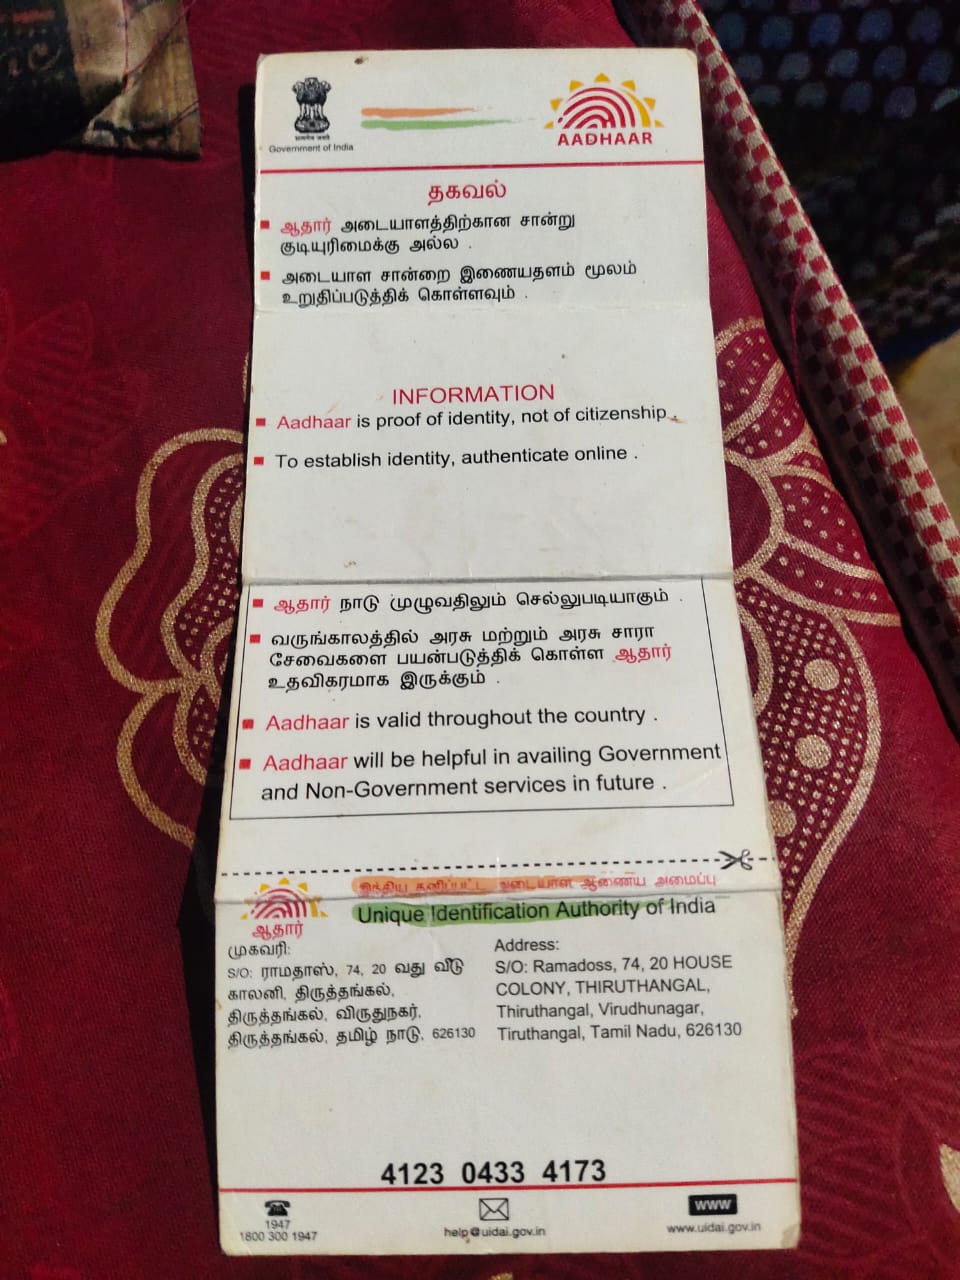 Government of India
AADHAAR
தகவல்
ஆதார் அடையாளத்திற்கான சான்று
குடியுரிமைக்கு அல்ல .
அடையாள சான்றை இணையதளம் மூலம்
உறுதிப்படுத்திக் கொள்ளவும் .
INFORMATION
Aadhaar is proof of identity, not of citizenship .
To establish identity, authenticate online .
ஆதார் நாடு முழுவதிலும் செல்லுபடியாகும் .
வருங்காலத்தில் அரசு மற்றும் அரசு சாரா
சேவைகளை பயன்படுத்திக் கொள்ள ஆதார்
உதவிகரமாக இருக்கும் .
Aadhaar is valid throughout the country .
Aadhaar will be helpful in availing Government
and Non-Government services in future .
இந்திய தனிப்பட்ட அடையாள ஆணைய அமைப்பு
Unique Identification Authority of India
ஆதார்
முகவரி:
S/O: ராமதாஸ், 74, 20 வது வீடு
காலனி, திருத்தங்கல்,
திருத்தங்கல், விருதுநகர்,
திருத்தங்கல், தமிழ் நாடு, 626130
Address:
S/O: Ramadoss, 74, 20 HOUSE
COLONY, THIRUTHANGAL,
Thiruthangal, Virudhunagar,
Tiruthangal, Tamil Nadu, 626130
4123 0433 4173
1947
1800 300 1947
help@uidai.gov.in
www
www.uidai.gov.in